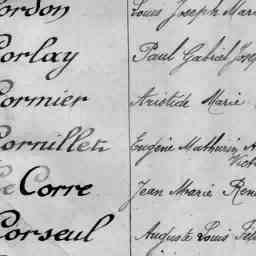 Cordon Louis Joseph Mari
Corlay Paul Gabriel Jose
Cormier Aristide Marie
Cornillet Eugène Mathurin A
Vict
Le Corre Jean Marie Ren
Corseul Auguste Louis